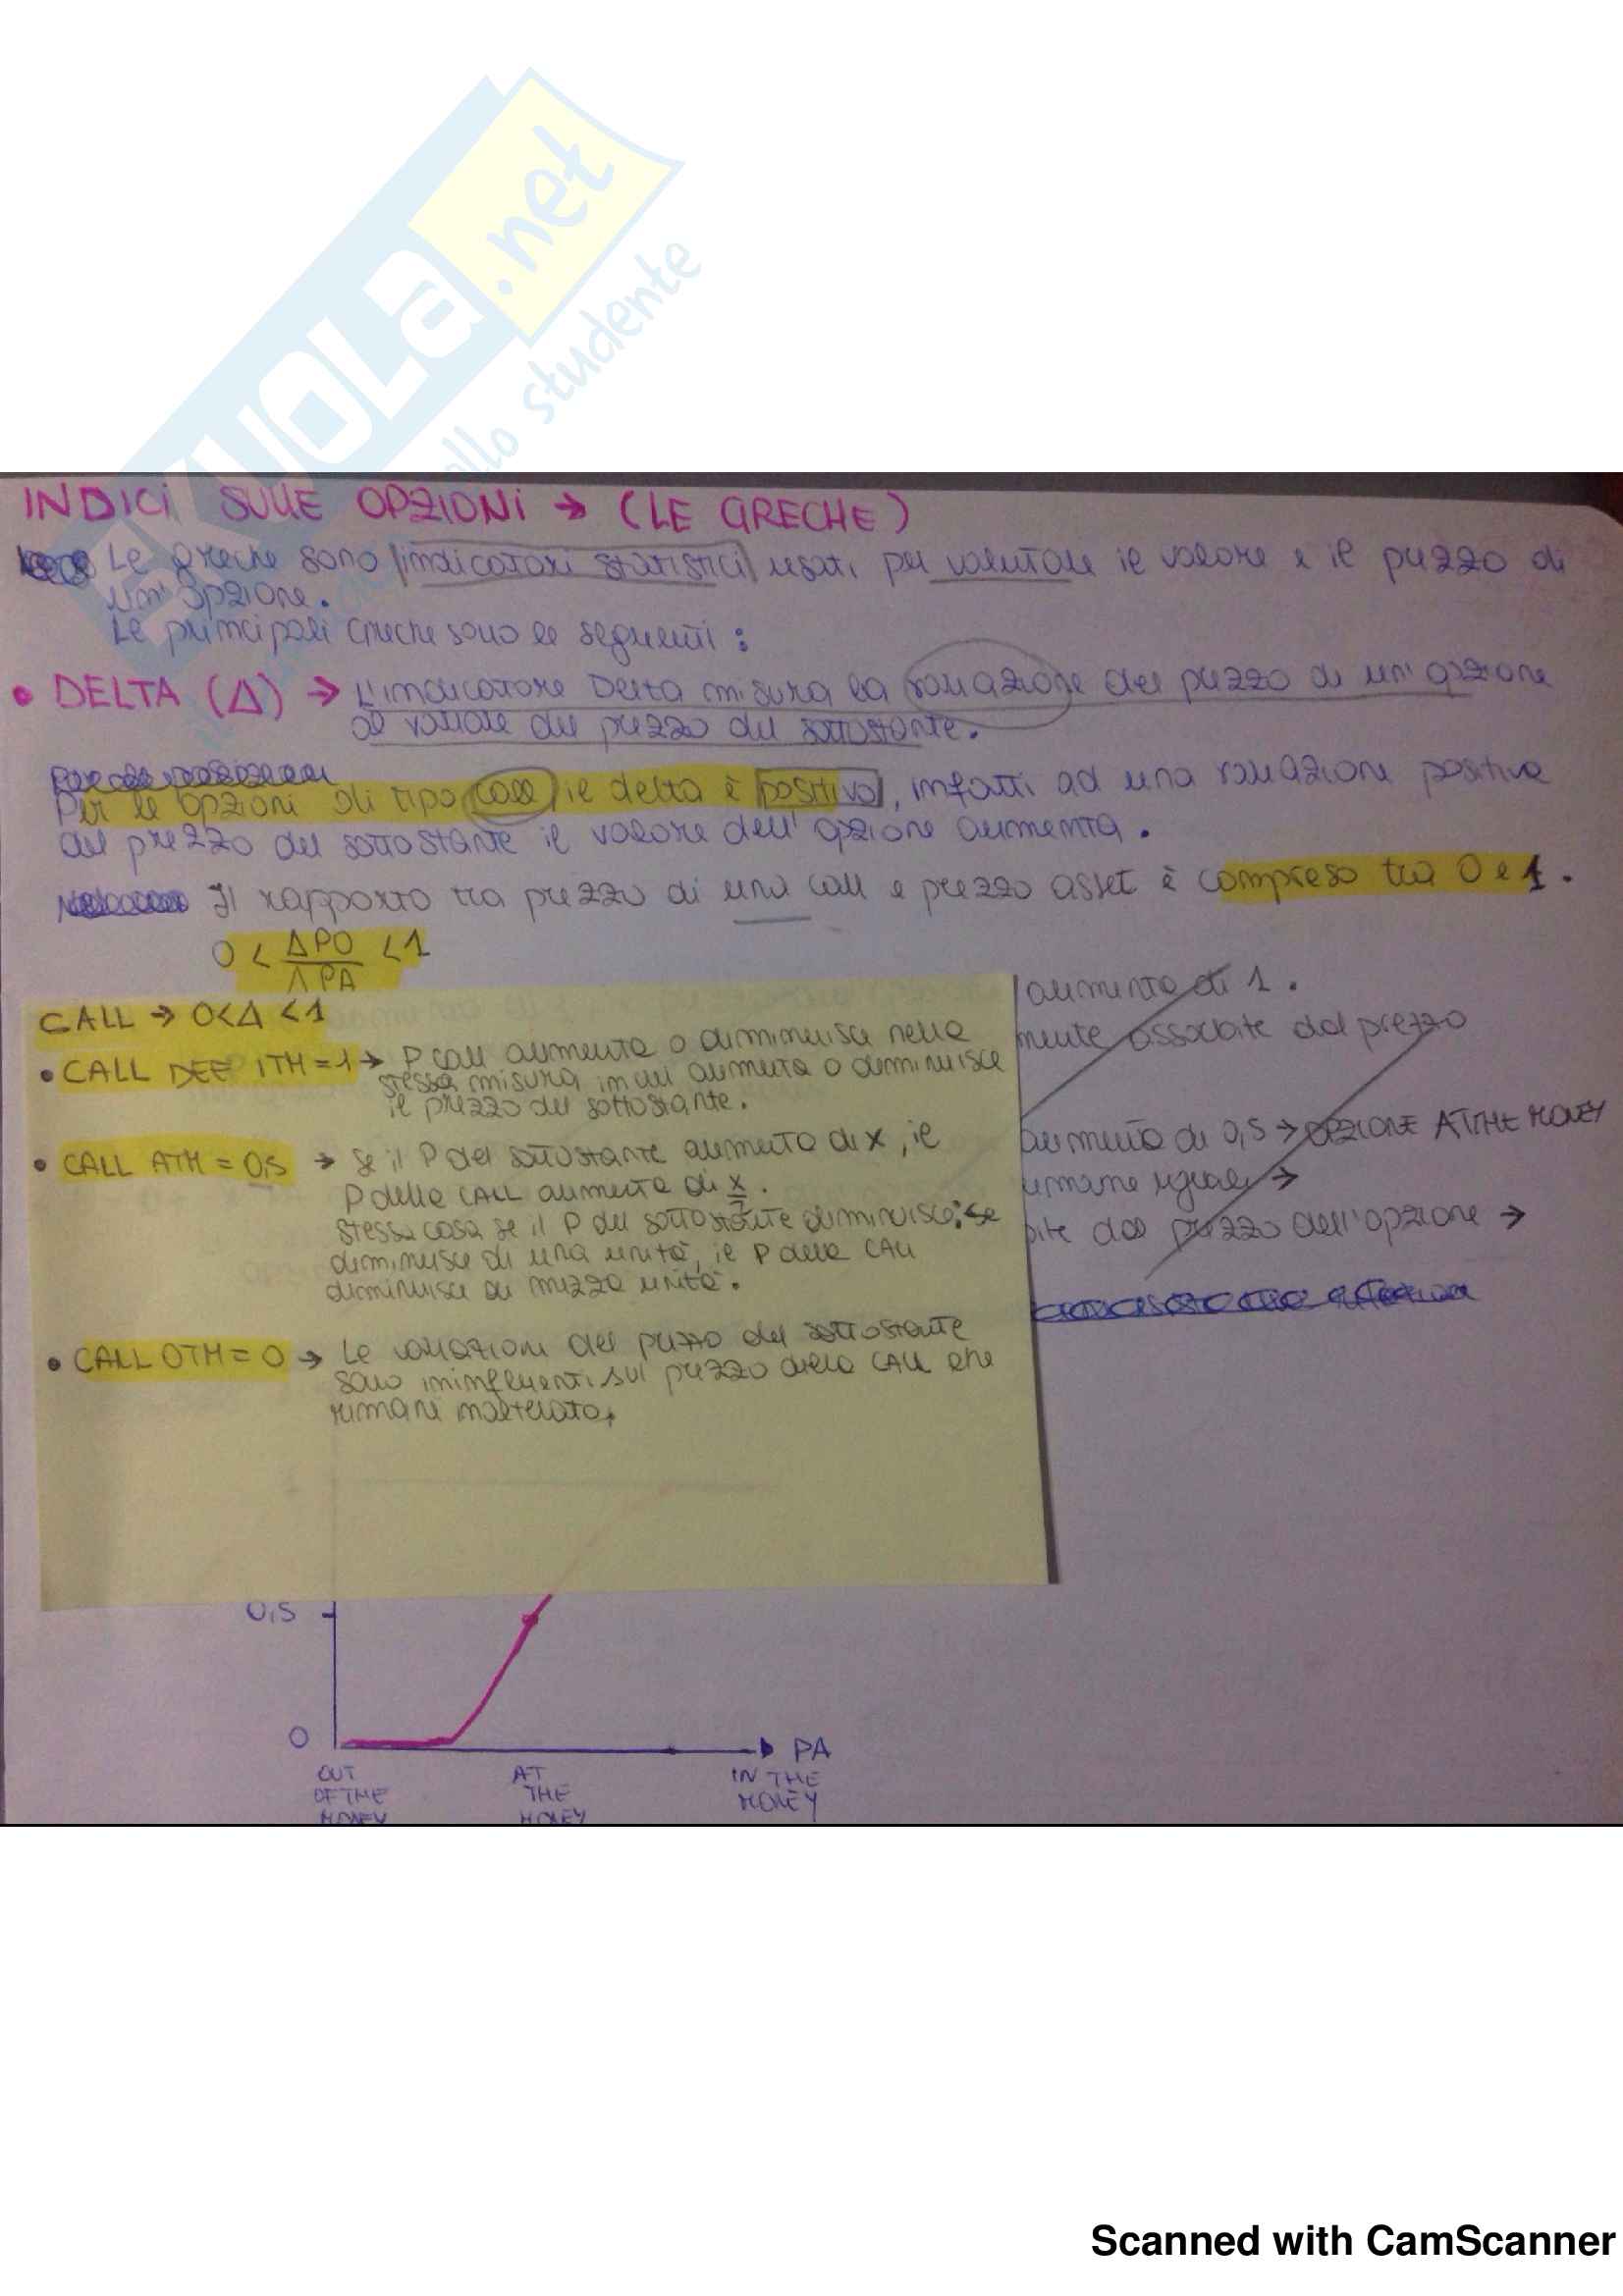 SKUOLA.net
INDICI SULLE OPZIONI → (LE GRECHE)
Le Greche sono indicatori statistici usati per valutare il valore e il prezzo di
un'opzione.
Le principali Greche sono le seguenti:
• DELTA (Δ) → L'indicatore Delta misura la variazione del prezzo di un'opzione
al variare del prezzo del sottostante.
Per le opzioni di tipo call il delta è positivo, infatti ad una variazione positiva
del prezzo del sottostante il valore dell'opzione aumenta.
Il rapporto tra prezzo di una call e prezzo asset è compreso tra 0 e 1.
0 < ΔPO / ΔPA < 1
CALL → 0<Δ <1
• CALL DEEP ITM = 1 → P call aumenta o diminuisce nella
stessa misura in cui aumenta o diminuisce
il prezzo del sottostante.
• CALL ATM = 0,5 → Se il P del sottostante aumenta di x, il
P della CALL aumenta di x/2.
Stessa cosa se il P del sottostante diminuisce: se
diminuisce di una unità, il P della CALL
diminuisce di mezza unità.
• CALL OTM = 0 → Le variazioni del prezzo del sottostante
sono ininfluenti sul prezzo della CALL che
rimane inalterato.
aumenta di 1.
mente assorbite dal prezzo
aumenta di 0,5 → OPZIONE AT THE MONEY
rimane uguale →
bite dal prezzo dell'opzione →
0,5
0
PA
OUT OF THE MONEY
AT THE MONEY
IN THE MONEY
Scanned with CamScanner